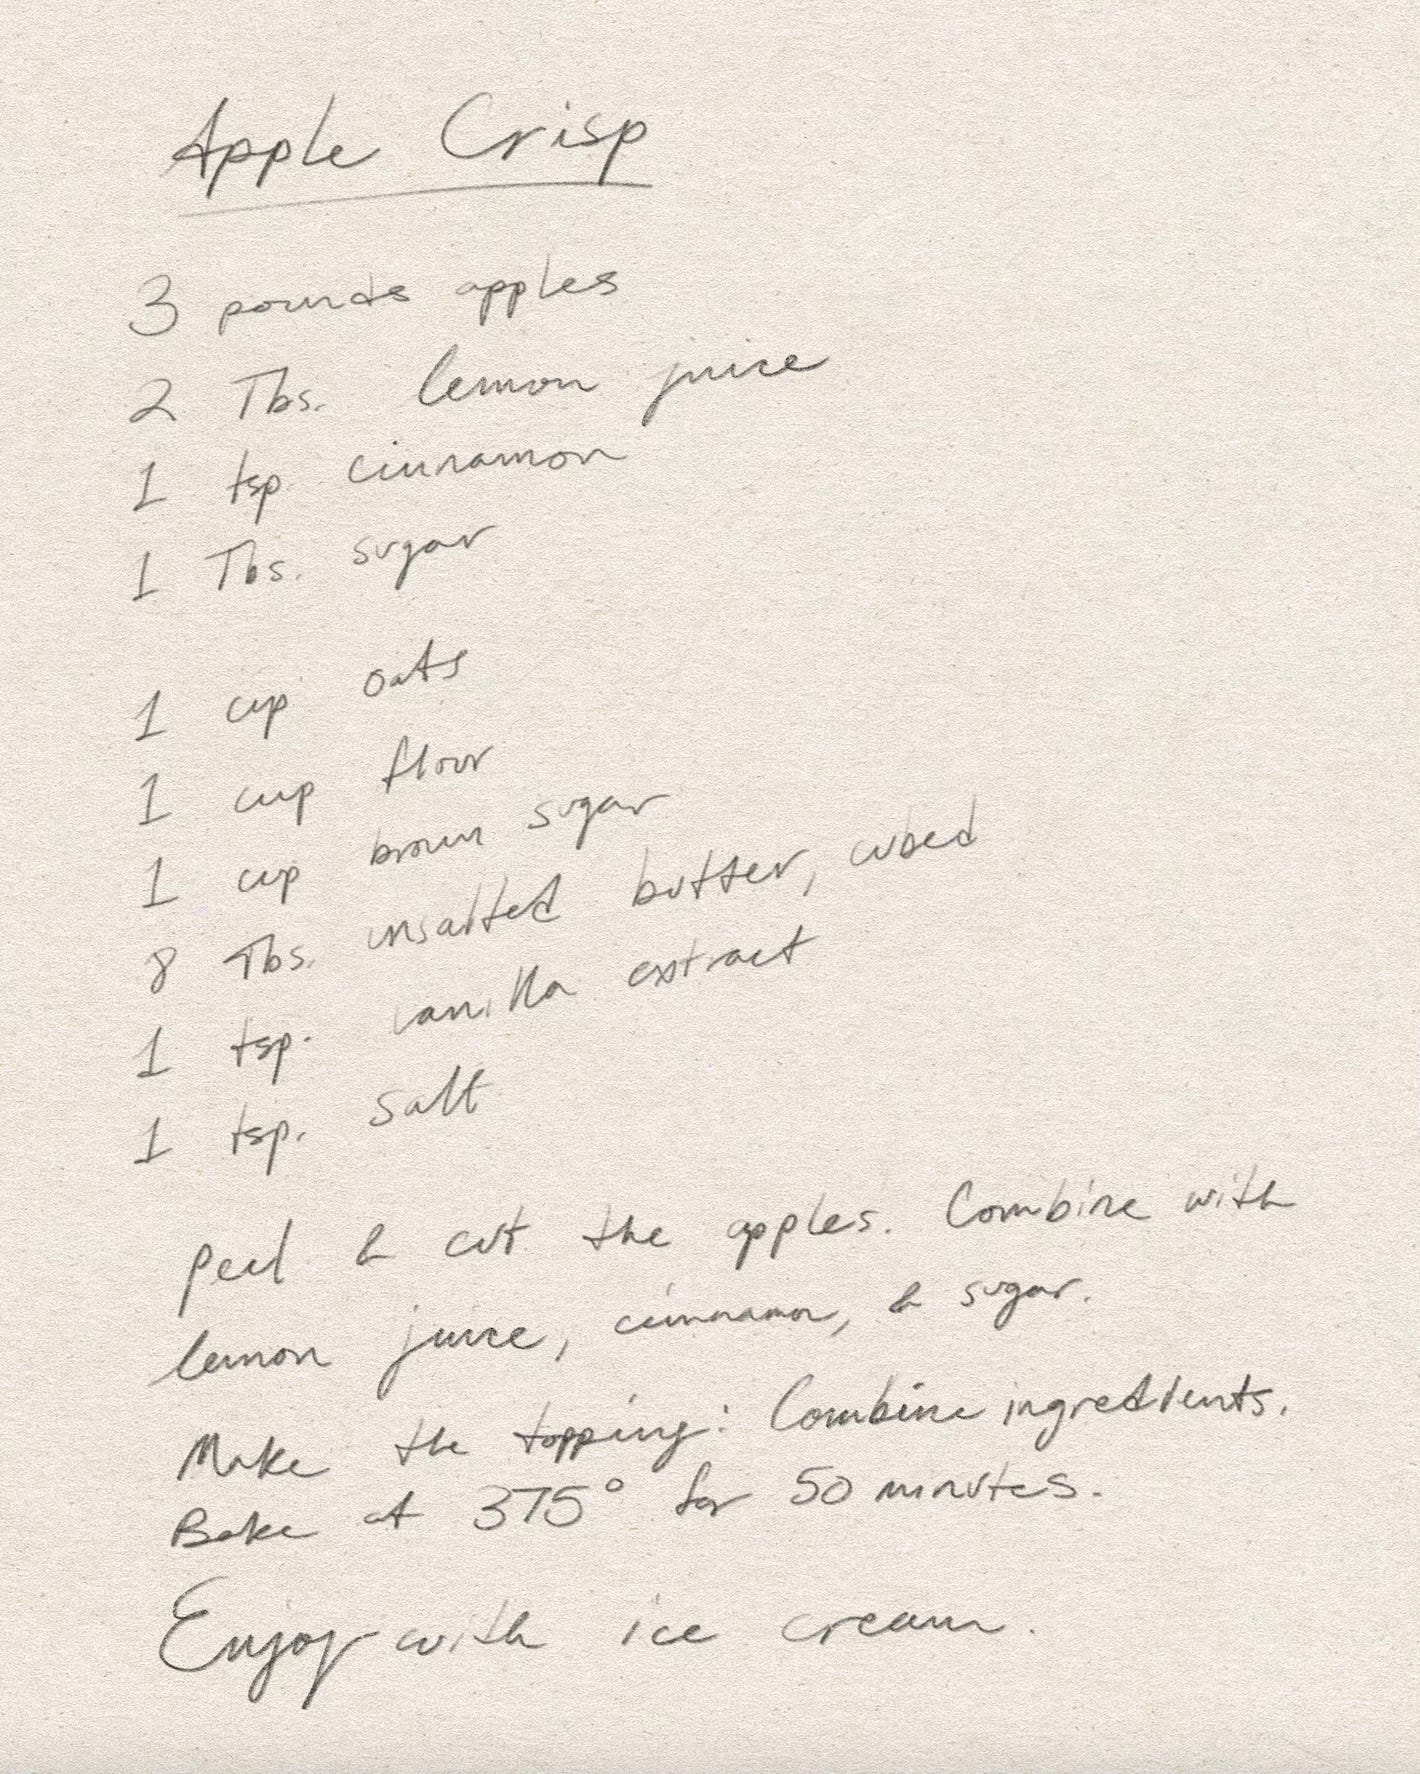 Apple Crisp
3 pounds apples
2 Tbs. lemon juice
1 tsp. cinnamon
1 Tbs. sugar
1 cup oats
1 cup flour
1 cup brown sugar
8 Tbs. unsalted butter, cubed
1 tsp. vanilla extract
1 tsp. salt
Peel & cut the apples. Combine with
lemon juice, cinnamon, & sugar.
Make the topping: Combine ingredients.
Bake at 375° for 50 minutes.
Enjoy with ice cream.